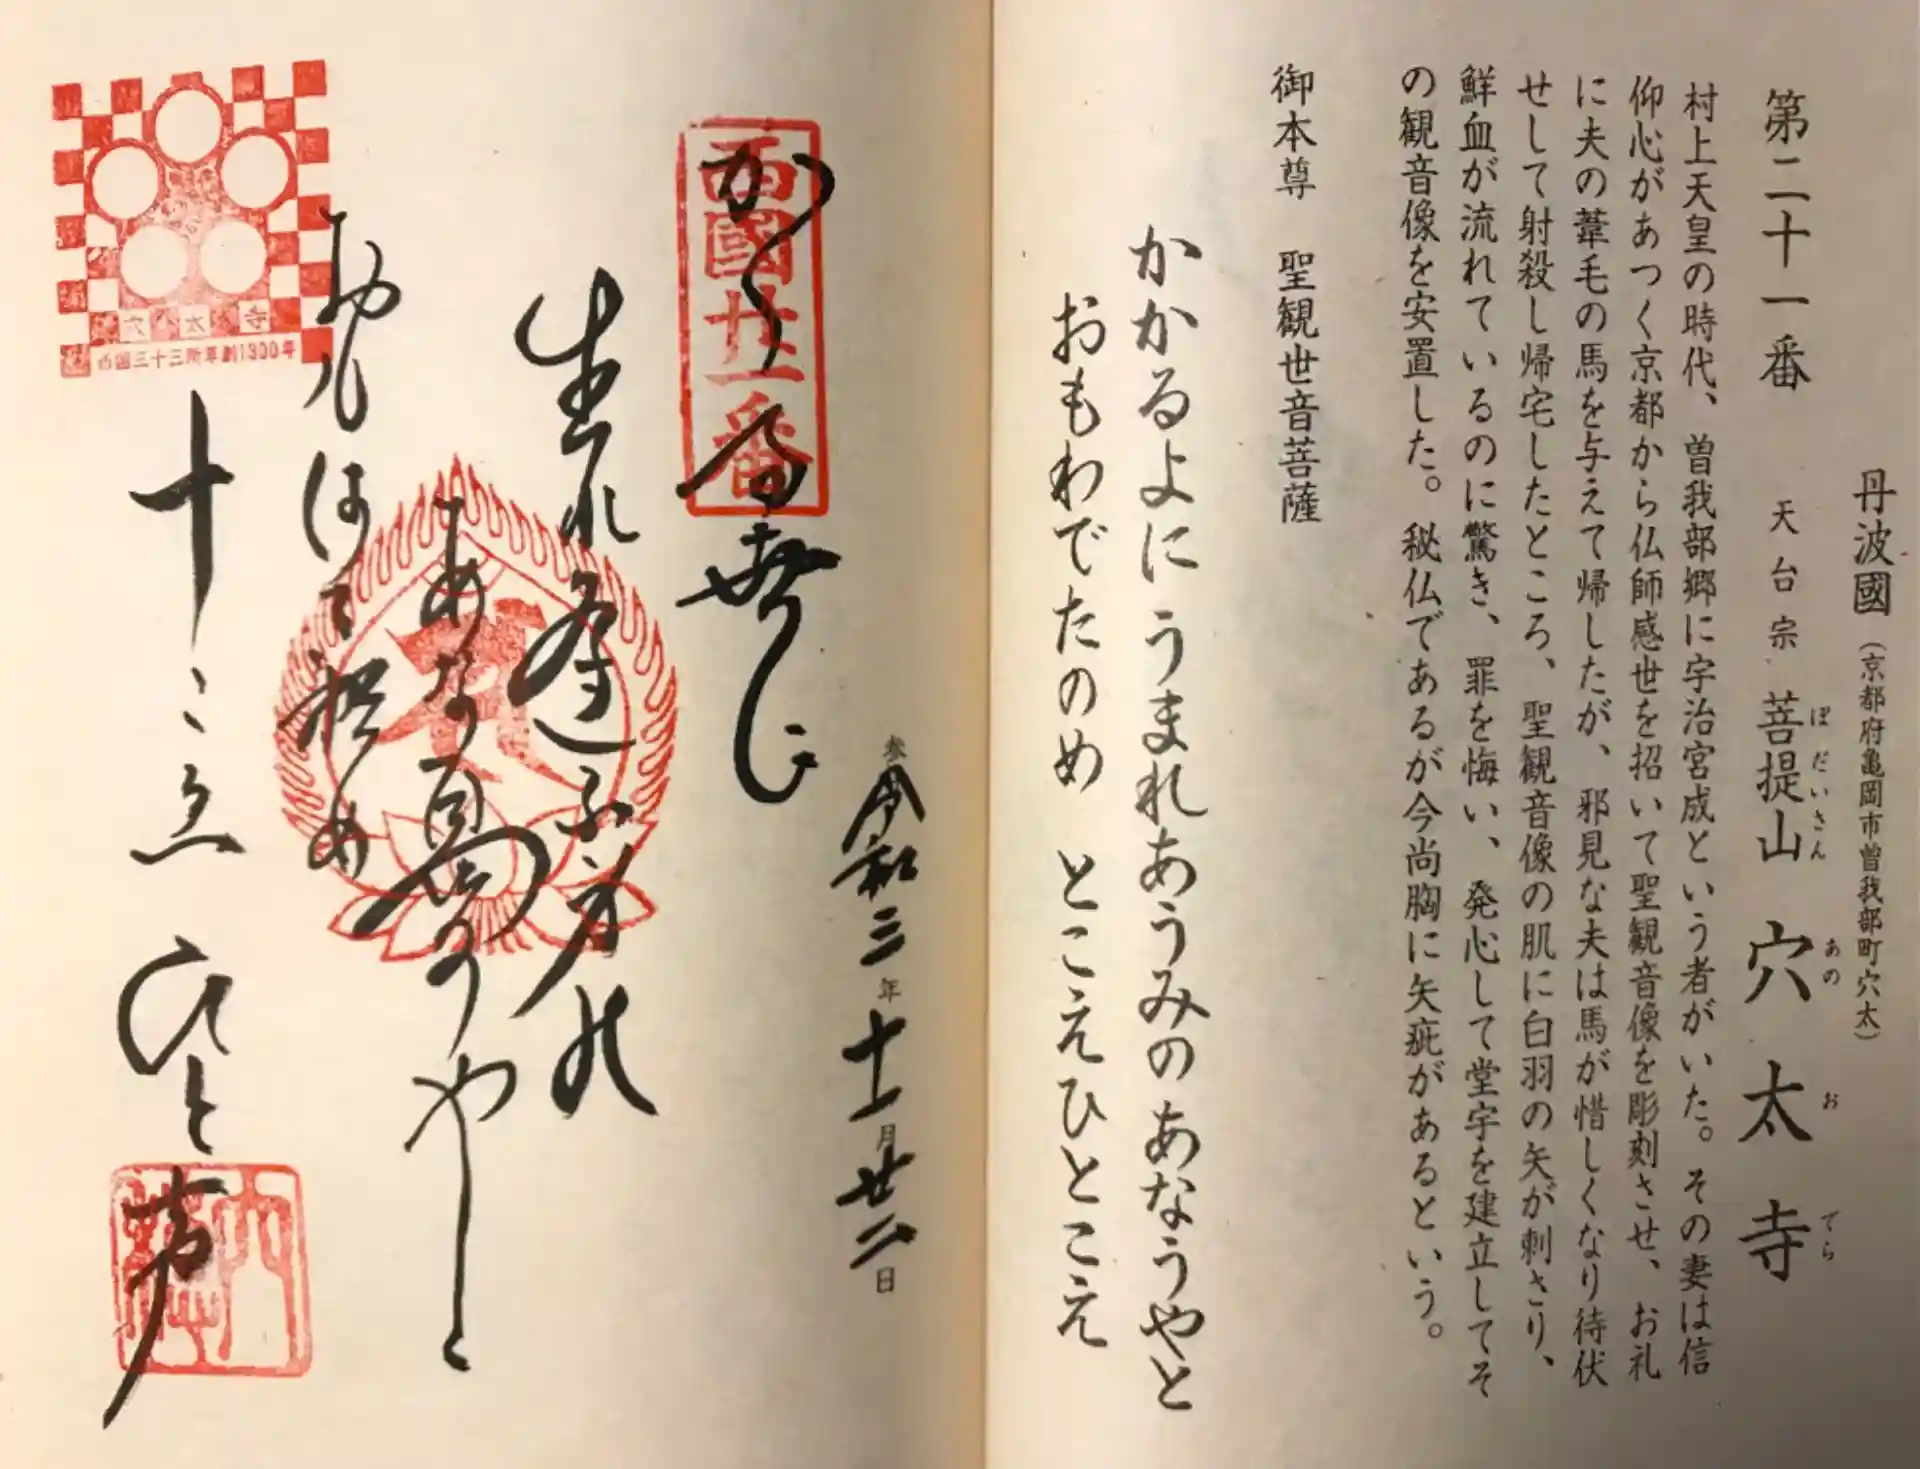 丹波國（京都府亀岡市曽我部町穴太）
第二十一番　天台宗　菩提山　穴太寺
ぼだいさん　あのおでら
村上天皇の時代、曽我部郷に宇治宮成という者がいた。その妻は信
仰心があつく京都から仏師感世を招いて聖観音像を彫刻させ、お礼
に夫の葦毛の馬を与えて帰したが、邪見な夫は馬が惜しくなり待伏
せして射殺し帰宅したところ、聖観音像の肌に白羽の矢が刺さり、
鮮血が流れているのに驚き、罪を悔い、発心して堂宇を建立してそ
の観音像を安置した。秘仏であるが今尚胸に矢疵があるという。
御本尊　聖観世音菩薩
かかるよに うまれあうみの あなうやと
おもわでたのめ とこえひとこえ
令和三年十一月廿二日
西國廿一番
生れ逢ふ身の
あな
十こゑ ひと声
穴太寺
西国三十三所草創1300年